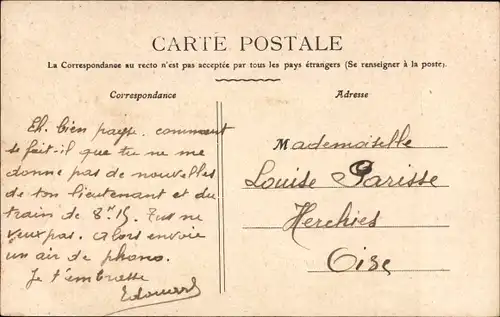 CARTE POSTALE
La Correspondance au recto n'est pas acceptée par tous les pays étrangers (Se renseigner à la poste).
Correspondance
Eh. bien comment
se fait-il que tu ne me
donne pas de nouvelles
de ton lieutenant et du
train de 8h 15. Tu ne
veux pas. Alors envoie
un air de phono.
Je t'embrasse
Edouard
Adresse
Mademoiselle
Louise Parisse
Herchies
Oise